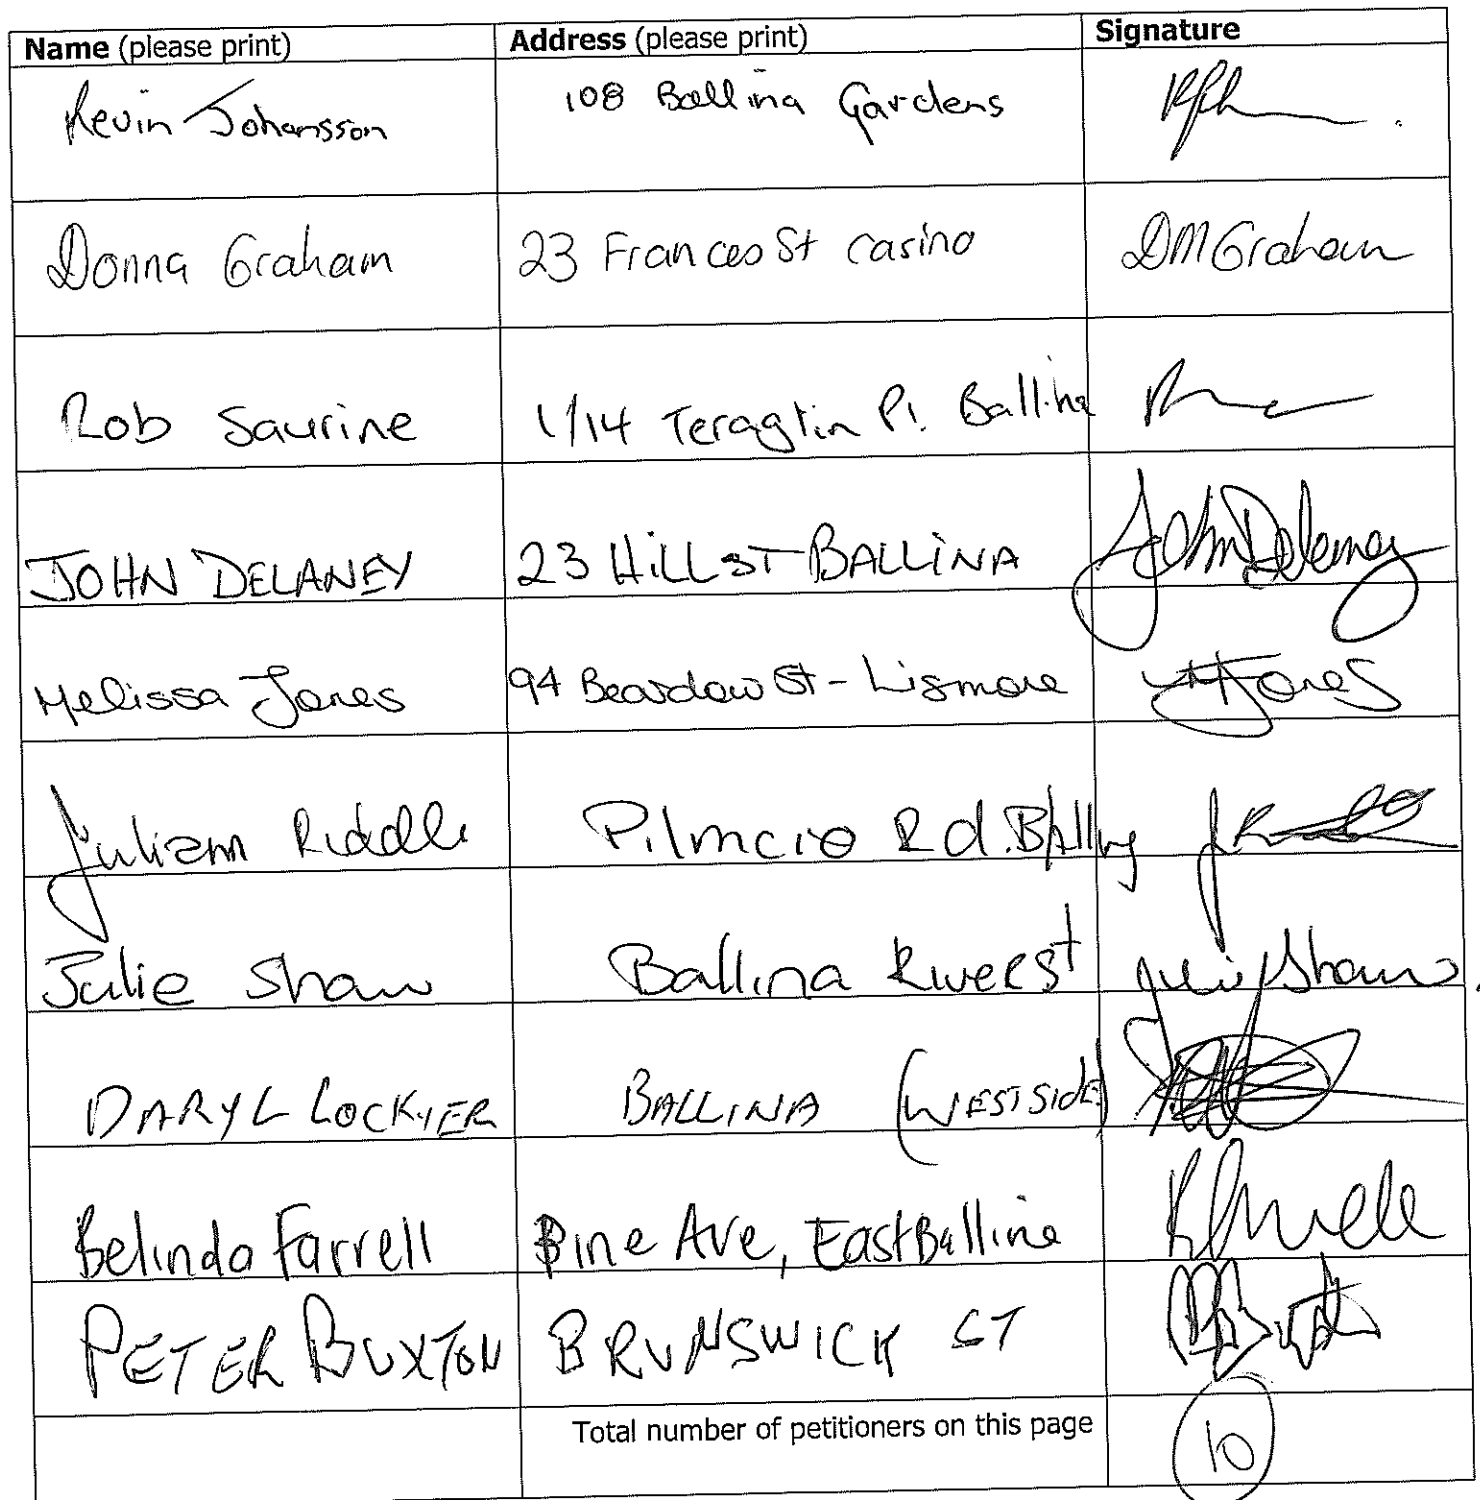 Name (please print) Address (please print) Signature
Kevin Johansson 108 Ballina Gardens
Donna Graham 23 Frances St Casino DM Graham
Rob Saurine 1/14 Teraglin Pl Ballina
JOHN DELANEY 23 HiLL ST BALLiNA John Delaney
Melissa Jones 94 Beardow St - Lismore MJones
Juliann Riddle Rd. Ballina
Julie Shaw Ballina River St Julie Shaw.
DARYL LOCKYER BALLINA (WESTSIDE)
Belinda Farrell Pine Ave, East Ballina
PETER BUXTON BRUNSWICK ST
Total number of petitioners on this page 10